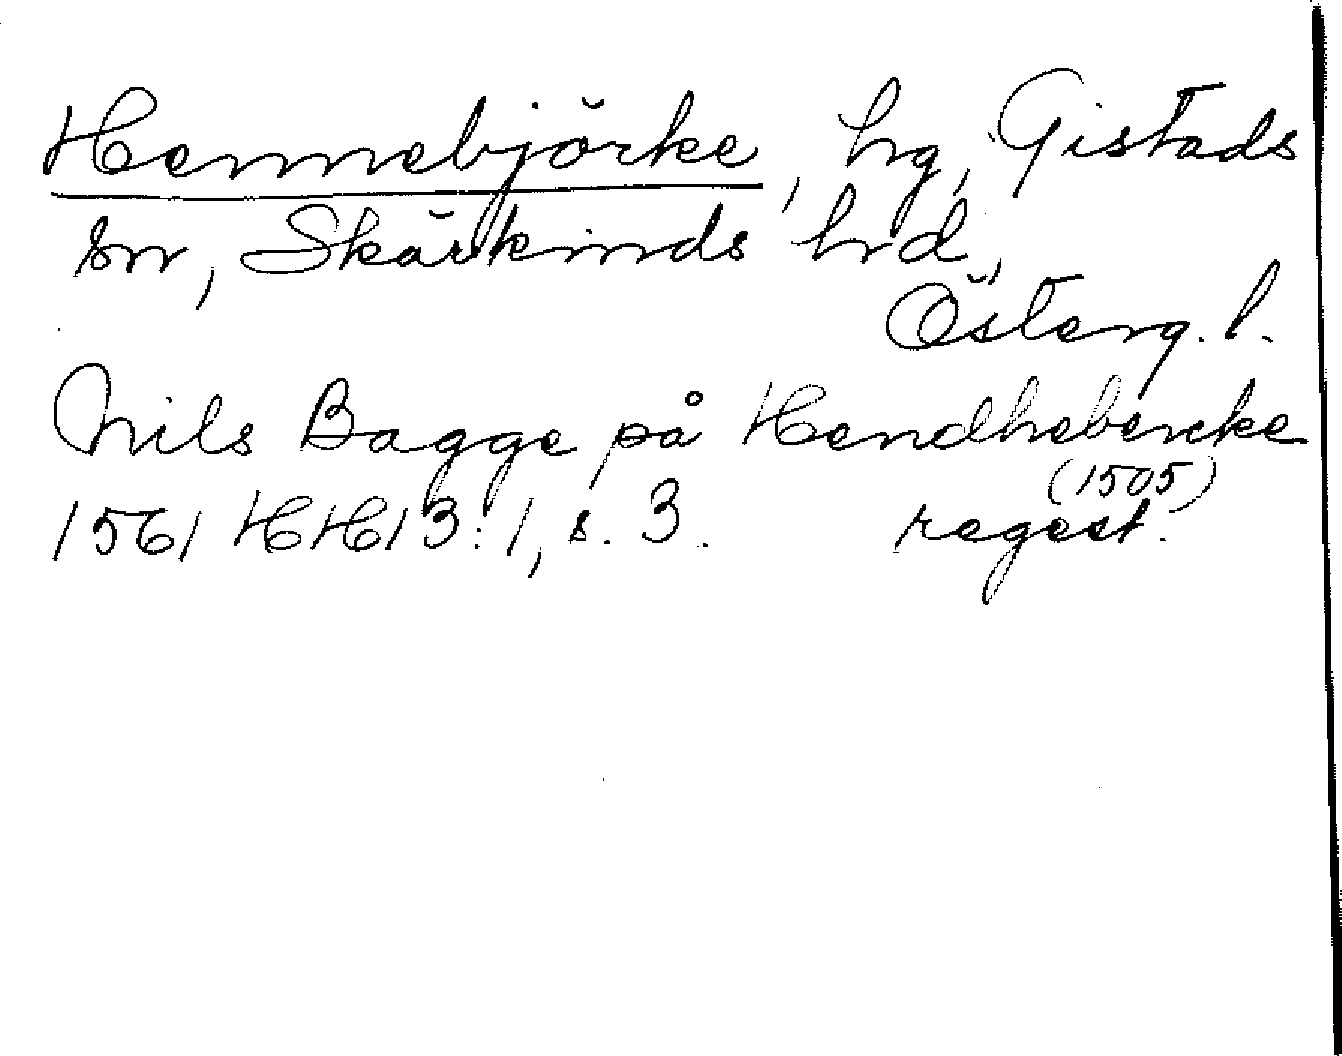 Hennebjörke, hg, Gistads
sn, Skärkinds hrd,
Österg. l.
Nils Bagge på Hendhebercke
(1505)
1561 HH 13:1, s. 3. regest.